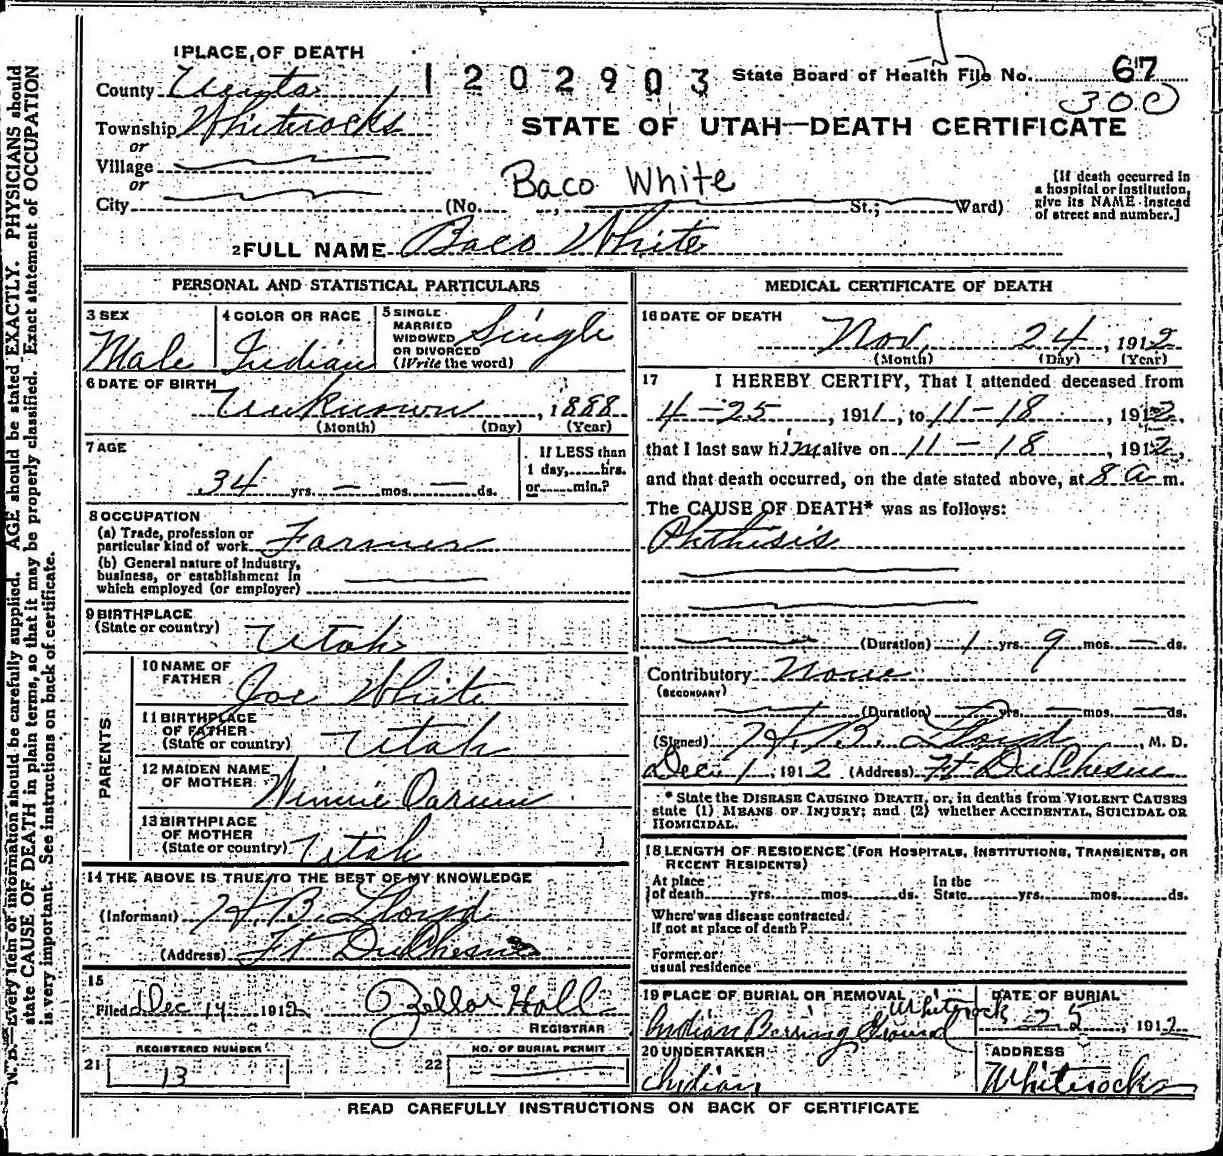 1 PLACE OF DEATH
County Uinta
1202903
State Board of Health File No. 67
300
Township Whiterocks
or
Village
or
City (No. St.; Ward)
STATE OF UTAH—DEATH CERTIFICATE
Baco White
[If death occurred in a hospital or institution, give its NAME instead of street and number.]
2 FULL NAME Baco White
PERSONAL AND STATISTICAL PARTICULARS
3 SEX Male
4 COLOR OR RACE Indian
5 SINGLE MARRIED WIDOWED OR DIVORCED (Write the word) Single
6 DATE OF BIRTH Unknown, 1888
(Month) (Day) (Year)
7 AGE
34 yrs. — mos. — ds.
If LESS than 1 day, hrs. or min.?
8 OCCUPATION
(a) Trade, profession or particular kind of work Farmer
(b) General nature of industry, business, or establishment in which employed (or employer)
9 BIRTHPLACE
(State or country) Utah
PARENTS
10 NAME OF FATHER Joe White
11 BIRTHPLACE OF FATHER (State or country) Utah
12 MAIDEN NAME OF MOTHER Winnie
13 BIRTHPLACE OF MOTHER (State or country) Utah
14 THE ABOVE IS TRUE TO THE BEST OF MY KNOWLEDGE
(Informant) H. B. Lloyd
(Address) Ft DuChesne
15
Filed Dec 14 1912 Zella Hall
REGISTRAR
REGISTERED NUMBER
21 13
NO. OF BURIAL PERMIT
22
MEDICAL CERTIFICATE OF DEATH
16 DATE OF DEATH
Nov. 24, 1912
(Month) (Day) (Year)
17 I HEREBY CERTIFY, That I attended deceased from
4-25, 1911, to 11-18, 1912,
that I last saw him alive on 11-18, 1912,
and that death occurred, on the date stated above, at 8 a m.
The CAUSE OF DEATH* was as follows:
Phthisis
(Duration) 1 yrs. 9 mos. — ds.
Contributory None
(SECONDARY)
(Duration) — yrs. — mos. — ds.
(Signed) H. B. Lloyd, M. D.
Dec 1, 1912 (Address) Ft DuChesne
* State the DISEASE CAUSING DEATH, or, in deaths from VIOLENT CAUSES
state (1) MEANS OF INJURY; and (2) whether ACCIDENTAL, SUICIDAL OR
HOMICIDAL.
18 LENGTH OF RESIDENCE (FOR HOSPITALS, INSTITUTIONS, TRANSIENTS, OR
RECENT RESIDENTS)
At place of death yrs. mos. ds. In the State yrs. mos. ds.
Where was disease contracted.
If not at place of death?
Former or
usual residence
19 PLACE OF BURIAL OR REMOVAL Whiterock
Indian Berring Ground
DATE OF BURIAL
25, 1912
20 UNDERTAKER
Indian
ADDRESS
Whiterocks
READ CAREFULLY INSTRUCTIONS ON BACK OF CERTIFICATE
N. B.—Every item of information should be carefully supplied. AGE should be stated EXACTLY. PHYSICIANS should
state CAUSE OF DEATH in plain terms, so that it may be properly classified. Exact statement of OCCUPATION
is very important. See instructions on back of certificate.